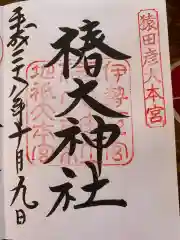 猿田彦大本宮
伊勢一宮
椿大神社
地祇大本宮
平成二十八年十月九日